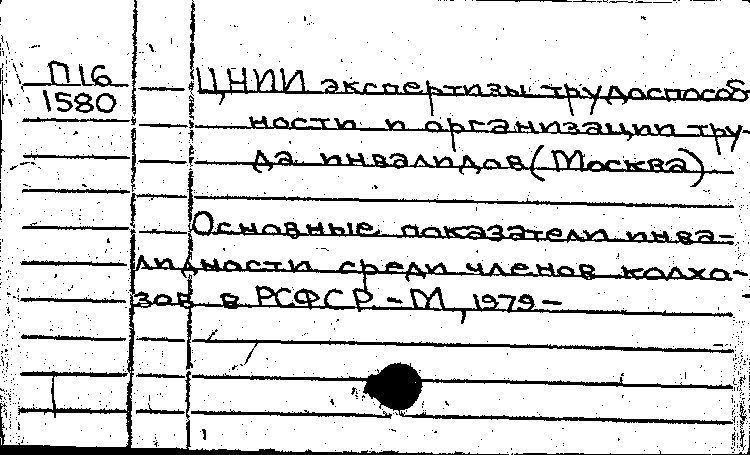 П16
1580
ЦНИИ экспертизы трудоспособ-
ности и организации тру-
да инвалидов (Москва)
Основные показатели инва-
лидности среди членов колхо-
зов в РСФСР - М, 1979 -